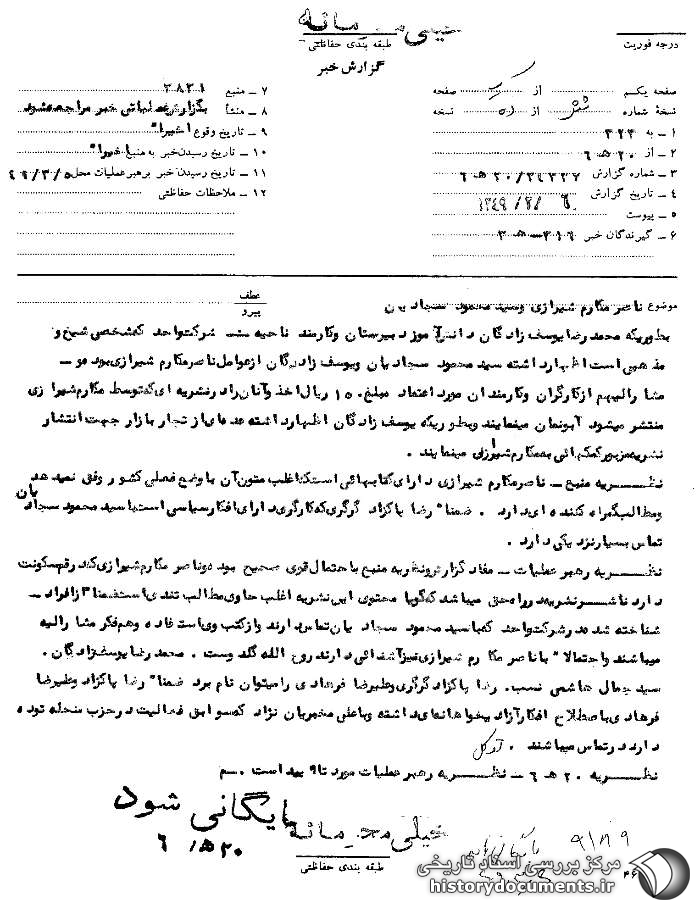 خیلی محرمانه
درجه فوریت
طبقه بندی حفاظتی
گزارش خبر
صفحه یکم از یک صفحه
نسخهٔ شماره شش از ده نسخه
۱ – به ۳۲۲
۲ – از ۲۰ ﻫ ۶
۳ – شماره گزارش ۲۰/۲٤۲۲۷ ﻫ ۶
۴ – تاریخ گزارش
۵ – پیوست
۶ – گیرندگان خبر ۳۱۶ – ﻫ ۳
۷ – منبع ۲۸۲۱
۸ – منشأ بگزارش عملیاتی خبر مراجعه شود
۹ – تاریخ وقوع اخیرا"
۱۰ – تاریخ رسیدن خبر به منبع اخیرا"
۱۱ – تاریخ رسیدن خبر برهبر عملیات محل ۴۹/۳/۵
۱۲ – ملاحظات حفاظتی
موضوع ناصر مکارم شیرازی و سید محمود سجادیان
عطف
پیرو
بطوریکه محمد رضا یوسف زادگان دانش آموز دبیرستان و کارمند ناحیه شرکت واحد که شخصی شیخ و
مذهبی است اظهار داشته سید محمود سجادیان و یوسف زادگان از عوامل ناصر مکارم شیرازی بوده و –
مشارالیهم از کارگران و کارمندان مورد اعتماد مبلغ ۱۵۰ ریال اخذ و آنان را در نشریه ای که توسط مکارم شیرازی
منتشر میشود آبونمان مینمایند و بطوریکه یوسف زادگان اظهار داشته عده ای از تجار بازار جهت انتشار
نشریه مزبور کمکهائی به مکارم شیرازی مینمایند .
نظریه منبع – ناصر مکارم شیرازی دارای کتابهائی است که اغلب متون آن با وضع فعلی کشور وفق نمیدهد
و مطالب گمراه کننده ای دارد . ضمنا" رضا پاکزاد گرگری که کارگری دارای افکار سیاسی است با سید محمود سجادیان
تماس بسیار نزدیکی دارد .
نظریه رهبر عملیات – مفاد گزارش و نظریه منبع با احتمال قوی صحیح بوده و ناصر مکارم شیرازی که در قم سکونت
دارد ناشر نشریه در راه حق میباشد که گویا محتوی این نشریه اغلب حاوی مطالب تندی است ضمنا" ۳ از افراد –
شناخته شده در شرکت واحد که با سید محمود سجادیان تماس دارند و از کتب وی استفاده و همفکر مشارالیه
میباشند و احتمالا" با ناصر مکارم شیرازی نیز آشنائی دارند روح الله گلدوست . محمد رضا یوسف زادگان .
سید جمال هاشمی نسب . رضا پاکزاد گرگری و علیرضا فرهادی را میتوان نام برد ضمنا" رضا پاکزاد و علیرضا
فرهادی باصطلاح افکار آزاد یخواهانه ای داشته و با علی مخبریان نژاد که سوابق فعالیت در حزب منحله توده
دارد در تماس میباشند .
نظریه ۲۰ ﻫ ۶ – نظریه رهبر عملیات مورد تائید است . م
بایگانی شود
۲۰ ﻫ ۶
خیلی محرمانه
طبقه بندی حفاظتی
۹/۸۹
مرکز بررسی اسناد تاریخی
historydocuments.ir